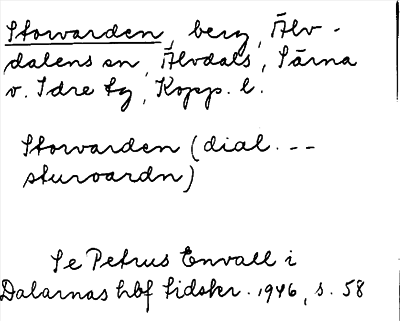 Storvarden, berg, Älv-
dalens sn, Älvdals, Särna
o. Idre tg, Kopp. l.
Storvarden (dial. --
sturvardn)
Se Petrus Envall i
Dalarnas hbf tidskr. 1946, s. 58